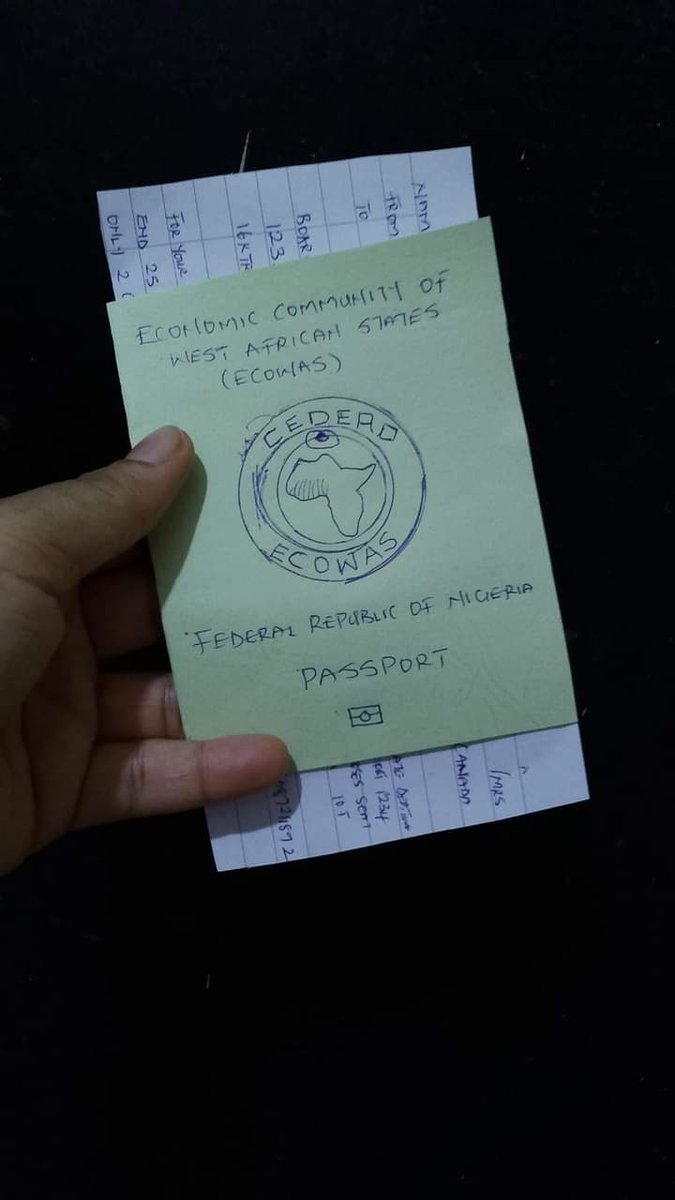 ECONOMIC COMMUNITY OF
WEST AFRICAN STATES
(ECOWAS)
CEDEAO
ECOWAS
FEDERAL REPUBLIC OF NIGERIA
PASSPORT
NAM
FROM
TO
BOAR
123
16KTR
FOR YOUR
END 25
ONLY 2
/MRS
CANADA
1234
SEAT